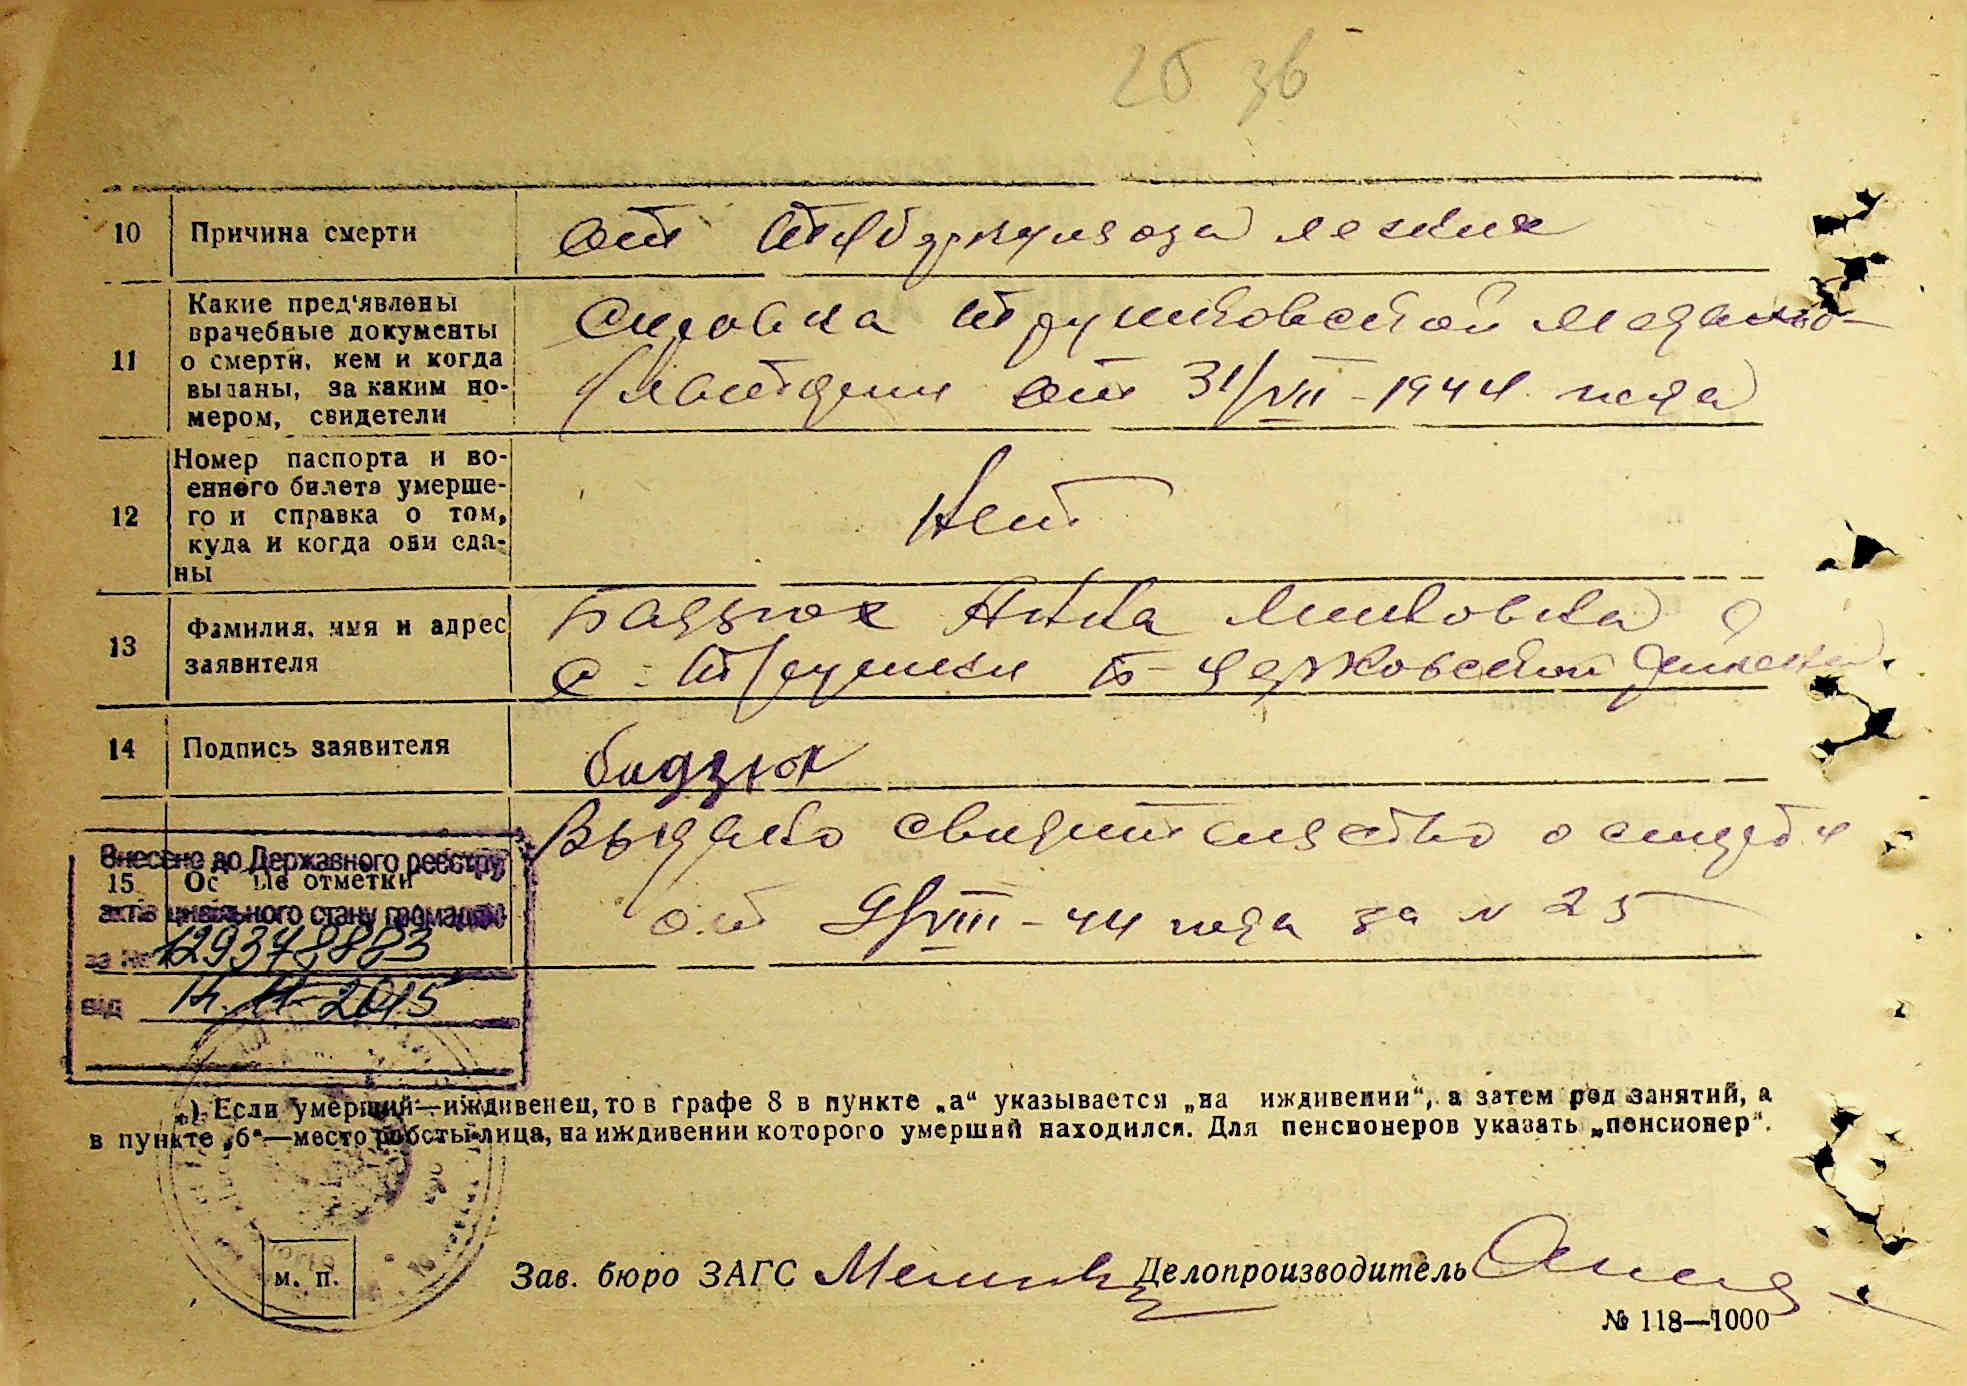 26 зв
10 Причина смерти от туберкулоза легких
11 Какие пред'явлены
врачебные документы
о смерти, кем и когда
выданы, за каким но-
мером, свидетели
от 31/VII - 1944 года
12 Номер паспорта и во-
енного билета умерше-
го и справка о том,
куда и когда они сда-
ны
Нет
13 Фамилия, имя и адрес
заявителя
Бадзюх
с. Трушки Б-Церковской
14 Подпись заявителя бадзюх
15 Ос ые отметки
Выдано свидетельство о смерти
от 9/VIII - 44 года за N 25
Внесено до Державного реєстру
актів цивільного стану громадян
за № 129378883
від 2015
*) Если умерший—иждивенец, то в графе 8 в пункте „а“ указывается „на иждивении“, а затем род занятий, а
в пункте „б“—место работы лица, на иждивении которого умерший находился. Для пенсионеров указать „пенсионер“.
м. п.
Зав. бюро ЗАГС
Делопроизводитель
№ 118—1000